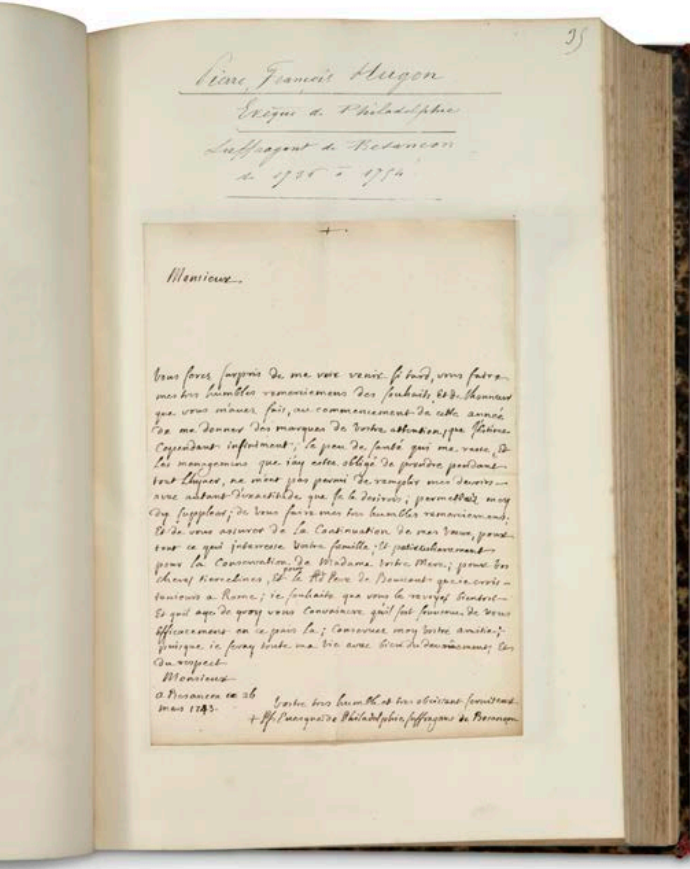 35
Pierre François Hugon
Evêque de Philadelphie
Suffragant de Besançon
de 1736 à 1754
+
Monsieur
Vous serez surpris de me voir venir si tard, vous faire
mes tres humbles remerciemens des souhaits, Et de lhonneur
que vous m'aues fait, au commencement de cette année
de me donner des marques de Vostre attention, que
Cependant infiniment, le peu de santé qui me reste, Et
Les menagemens que iay estez obligé de prendre pendant
tout Lhyuer, ne m'ont pas permi de remplir mes devoirs
avec autant d'exactitude que je le desirois; permettez moy
dy suppleer, de Vous faire mes tres humbles remerciemens,
Et de vous assurer de La Continuation de mes Vœux, pour
tout ce qui interesse Vostre famille, Et particulierement
pour la Conservation de Madame Vostre Mere; pour vos
cheres, Et pour le Rd Pere de que ie crois
tousiours a Rome; ie souhaite que vous le revoyez bientost
Et quil aye de quoy vous Convaincre quil sest souvenu de vous
Efficacement en ce pais La; Conseruez moy Vostre amitié;
puisque ie seray toute ma Vie avec bien du Et
du respect
Monsieur
a Besancon ce 26
mars 1743.
Vostre tres humble et tres obeissant serviteur
+ Pf. Euesque de Philadelphie, suffragant de Besançon